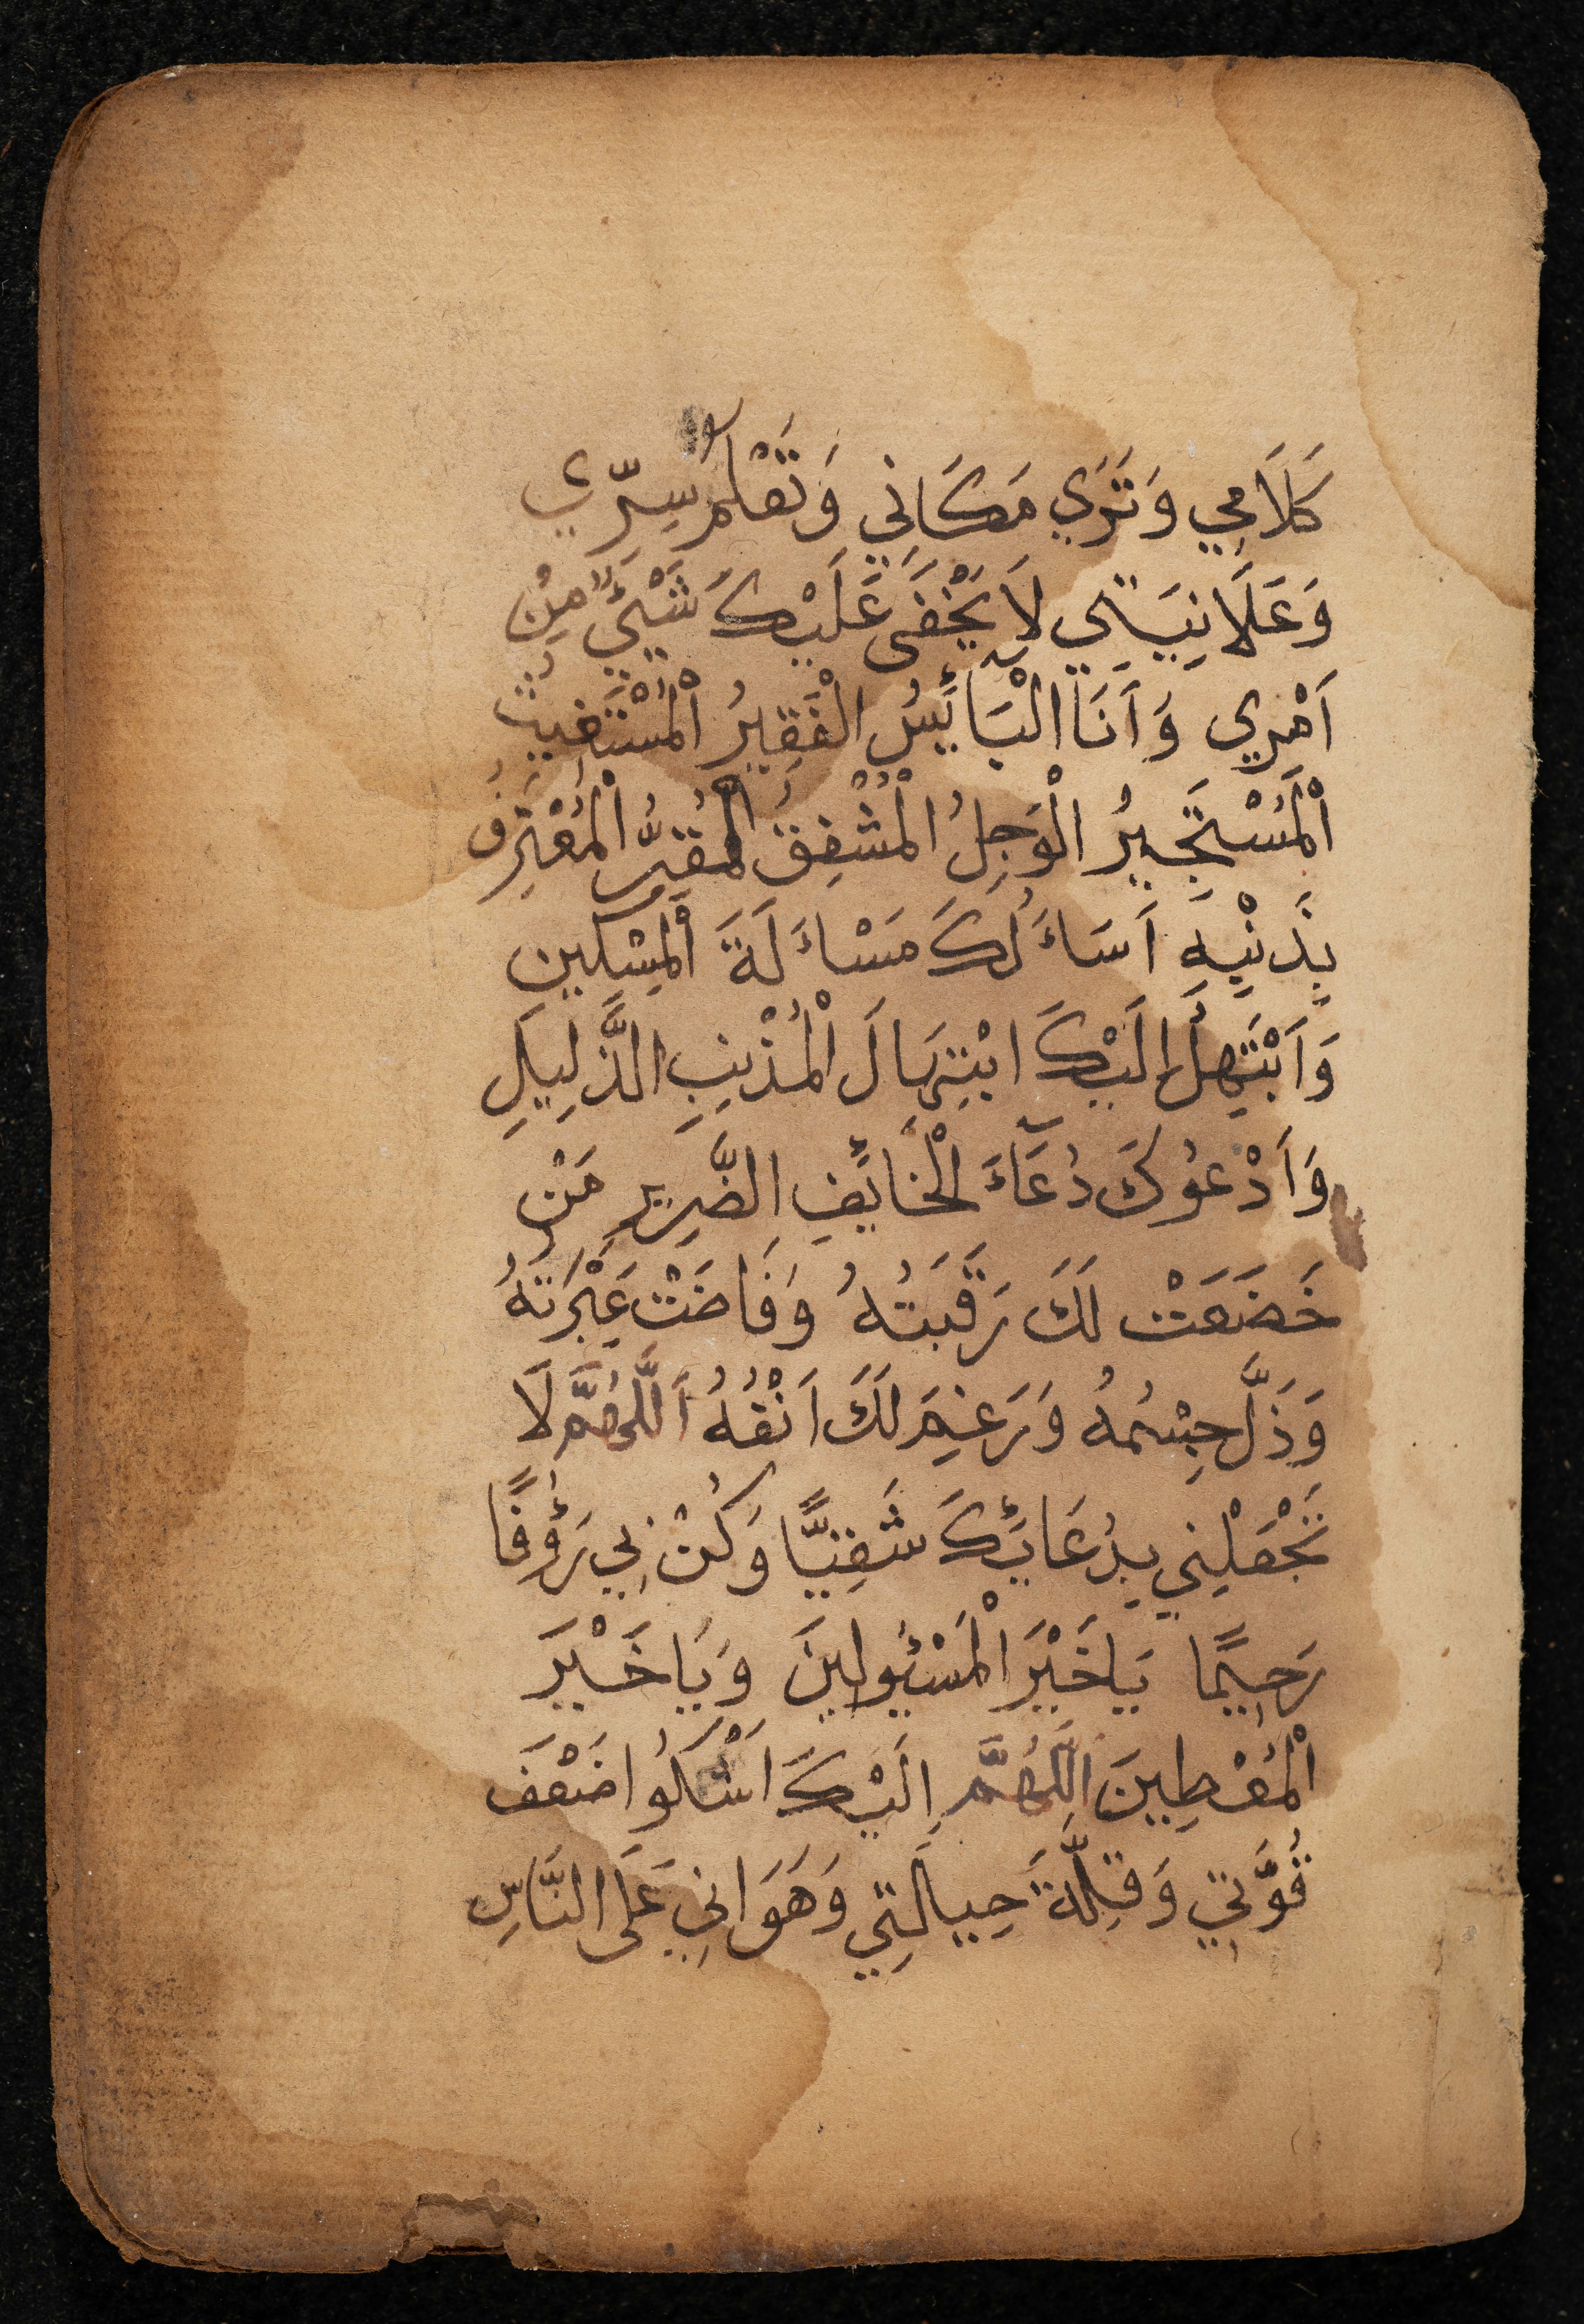 كَلَامِي وَتَرَي مَكَانِي وَتَعْلَمُ سِرِّي
وَعَلَانِيَتِي لَا يَخْفَى عَلَيْكَ شَيْئٌ مِنْ
اَمْرِي وَاَنَا الْبَآئِسُ الْفَقِيرُ الْمُسْتَغِيثُ
الْمُسْتَجِيرُ الْوَجِلُ الْمُشْفِقُ الْمُقِرُّ الْمُعْتَرِفُ
بِذَنْبِهِ اَسَاَلُكَ مَسْاَلَةَ الْمِسْكِينِ
وَاَبْتَهِلُ اِلَيْكَ ابْتِهَالَ الْمُذْنِبِ الذَّلِيلِ
وَاَدْعُوكَ دُعَآءَ الْخَائِفِ الضَّرِيرِ مَنْ
خَضَعَتْ لَكَ رَقَبَتُهُ وَفَاضَتْ عَبْرَتُهُ
وَذَلَّ جِسْمُهُ وَرَغِمَ لَكَ اَنْفُهُ اَللَّهُمَّ لَا
تَجْعَلْنِي بِدُعَائِكَ شَقِيًّا وَكُنْ بِي رَؤُفًا
رَحِيمًا يَاخَيْرَ الْمَسْئُولِينَ وَيَاخَيْرَ
الْمُعْطِينَ اَللَّهُمَّ اِلَيْكَ اَشْكُوا ضَعْفَ
قُوَّتِي وَقِلَّةَ حِيالَتِي وَهَوَانِي عَلَى النَّاسِ